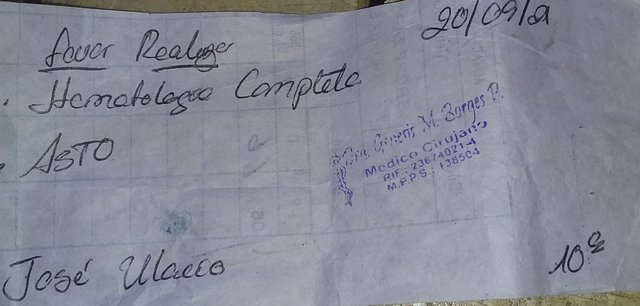 20/09/21
Favor Realizar
. Hematologia Completa
. ASTO
Dra. Génesis M. Borges P.
Médico Cirujano
RIF.: 23674921-4
M.P.P.S.: 138504
José Ulacio
10ª